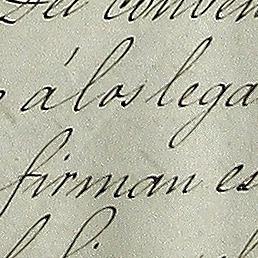 De conven
á los lega
firman es